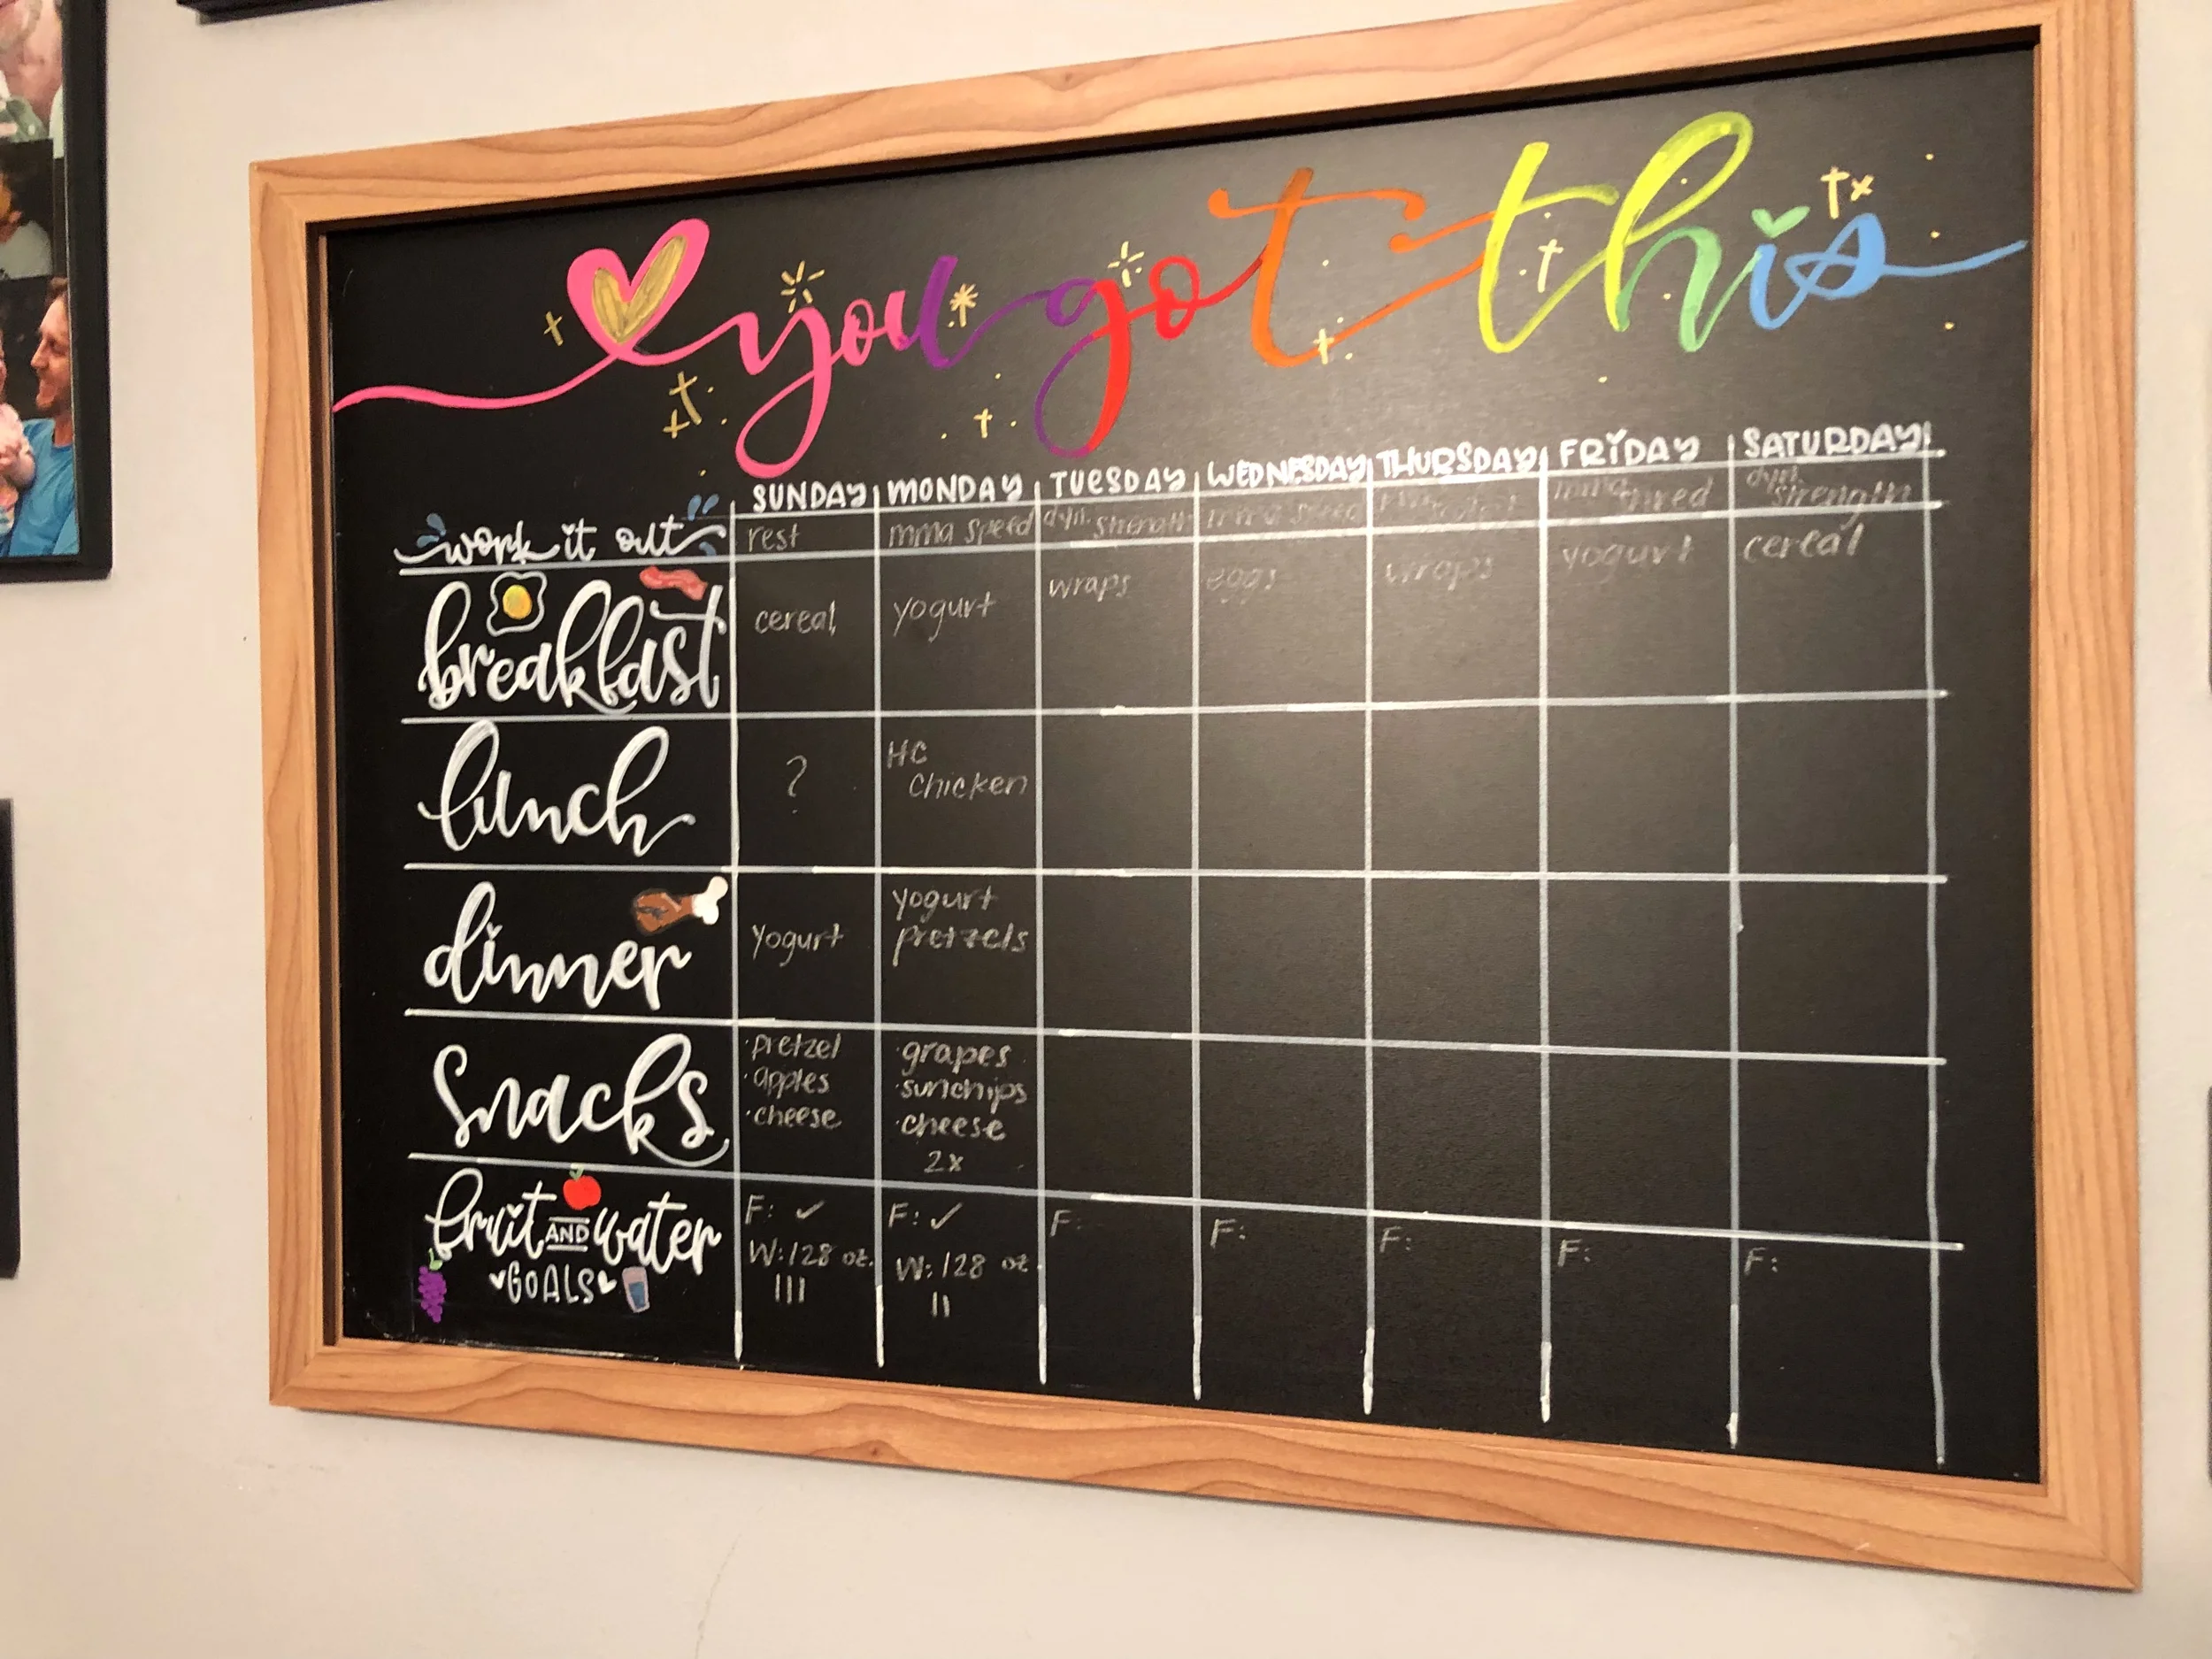 you got this
SUNDAY MONDAY TUESDAY WEDNESDAY THURSDAY FRIDAY SATURDAY
work it out rest mma speed dyn. strength mma speed mma dyn. strength
breakfast cereal yogurt wraps eggs wraps yogurt cereal
lunch ? HC
Chicken
dinner yogurt yogurt
pretzels
snacks ·pretzel ·grapes
·apples ·sunchips
·cheese ·cheese
2x
fruit AND water F: ✓ F: ✓ F: F: F: F: F:
GOALS W: 128 oz. W: 128 oz.
||| ||